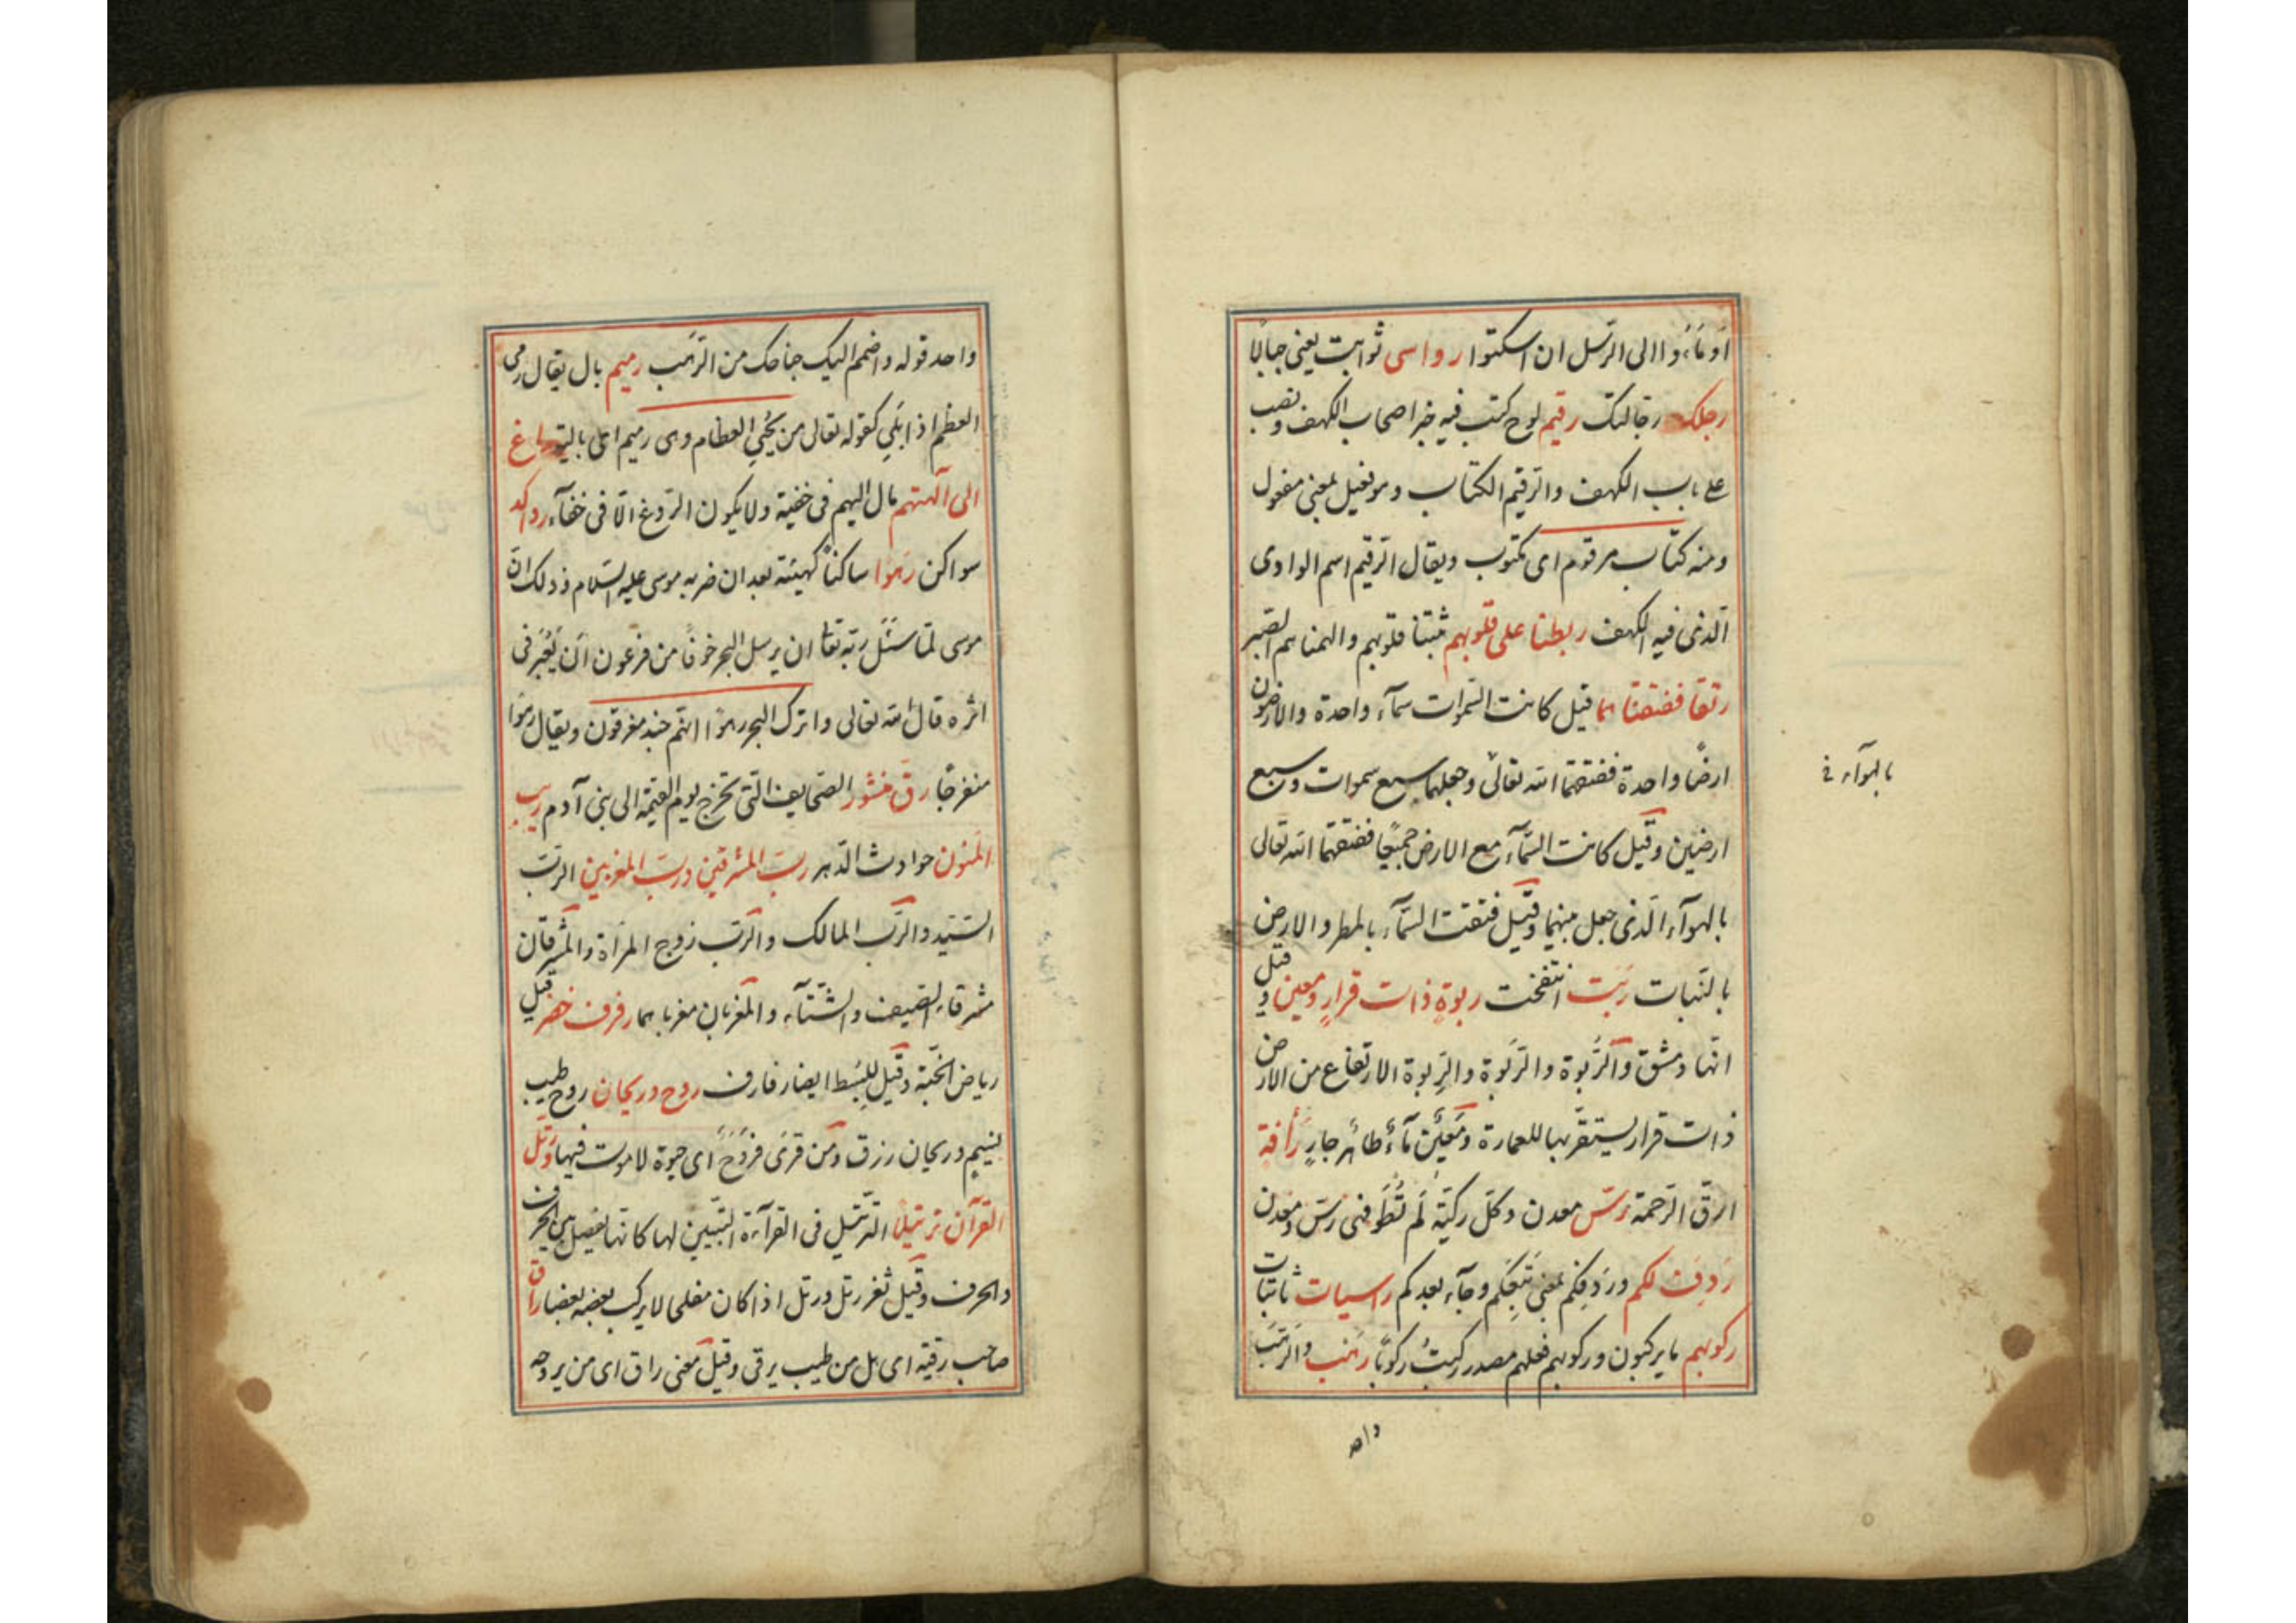 أومأوا الى الرسل ان اسكتوا رواسى ثوابت يعنى جبالا
رجلك رجالتك رقيم لوح كتب فيه خبر اصحاب الكهف ونصب
على باب الكهف والرقيم الكتاب وهو فعيل بمعنى مفعول
ومنه كتاب مرقوم اى مكتوب ويقال الرقيم اسم الوادى
الّذى فيه الكهف ربطنا على قلوبهم ثبتنا قلوبهم والهمناهم الصّبر
رتقا ففتقناهما قيل كانت السّموات سمآء واحدة والارضون
ارضًا واحدة ففتقهما الله تعالى وجعلهما سبع سموات وسبع
ارضين وقيل كانت السّمآء مع الارض جميعًا ففتقهما الله تعالى
بالهوآء الّذى جعل بينهما وقيل فتقت السّمآء بالمطر والارض
بالنّبات رَبَت انتفخت ربوةٍ ذات قرارٍ ومعين قيل
انّها دمشق والرُّبوة والرَّبوة والرِّبوة الارتفاع من الارض
ذات قرار يستقرّ بها للعمارة ومَعِين مآءٌ طاهر جارٍ رَأفة
ارقّ الرّحمة رسّ معدن وكلّ ركيّة لَم تُطْوَ فهى رسّ ومعدن
رَدِفَ لكم ورَدِفكم بمعنى تَبِعَكم وجآء بعدكم راسيات ثابتات
ركوبهم ما يركبون وركوبهم فعلهم مصدر ركبتُ ركوبًا رَهَب والرَّهَب
واحد
بالهوآء
واحد قوله واضمم اليك جناحك من الرَّهَب رميم بال يقال رمّ
العظم اذا بَلِىَ كقوله تعالى من يُحْيى العظام وهى رميم اى بالية فراغ
الى آلهتهم مال اليهم فى خفية ولا يكون الرّوغ الّا فى خفآء رواكد
سواكن رَهوا ساكنًا كهيئته بعد ان ضربه موسى عليه السّلام وذلك انّ
موسى لمّا سئل ربّه تعا ان يرسل البحر خوفًا من فرعون ان يَعْبُرَ فى
اثره قال الله تعالى واترك البحر رهوًا انّهم جند مغرقون ويقال رهوا
منفرجًا رقّ منشور الصّحايف الّتى تخرج يوم القيمة الى بنى آدم ريب
المنون حوادث الدّهر ربّ المشرقين وربّ المغربين الرّبّ
السّيّد والرّبّ المالك والرّبّ زوج المرأة والمشرقان
مشرقا الصّيف والشّتآء والمغربان مغرباهما رفرف خضر قيل
رياض الجنّة وقيل للبُسط ايضا رفارف روح وريحان روح طيب
نسيم وريحان رزق ومن قرَى فرُوحٌ اى حيوة لا موت فيها ورتّل
القرآن ترتيلا التّرتيل فى القرآءة التّبيين لها كانّها تفصيل بين الحرف
والحرف وقيل ثغر رتل ورتل اذا كان مفلجا لا يركب بعضه بعضا راق
صاحب رقية اى هل من طبيب يرقى وقيل معنى راق اى من يروحه